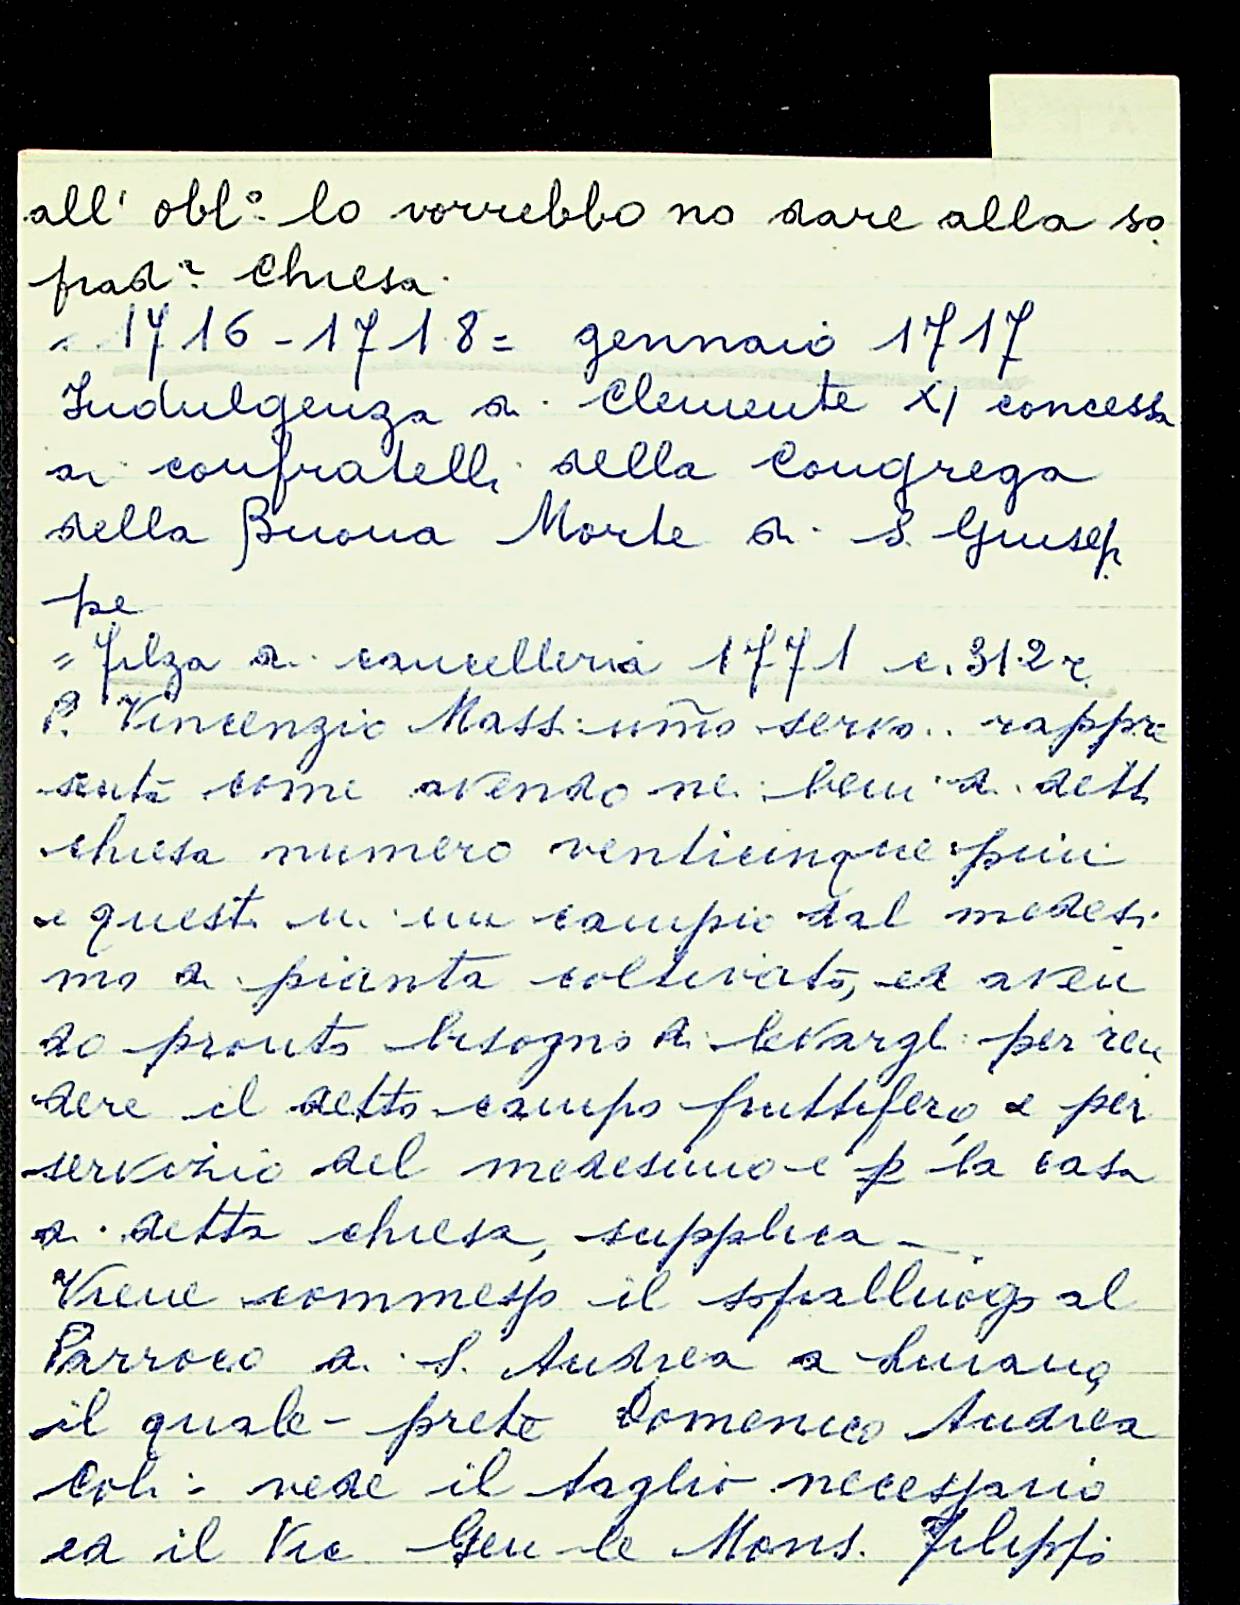 all' obl:º lo vorrebbo no dare alla so
prad:ª Chiesa.
= 1716-1718= gennaio 1717
Indulgenza di Clemente XI concessa
ai confratelli della Congrega
della Buona Morte di S. Giusep
pe
= Filza di cancelleria 1771 c. 312 r.
P. Vincenzio Massi um̃o servo .. rappre
senta come avendo nei beni di detta
chiesa numero venticinque pini
e questi in un campio dal medesi
mo di pianta coltivato, ed aven
do pronto bisogno di levargli per ren
dere il detto campo fruttifero, e per
servizio del medesimo e p la casa
di detta chiesa, supplica —.
Viene commesso il sopralluogo al
Parroco di S. Andrea a
il quale - prete Domenico Andrea
Coli - vede il taglio necessario
ed il Vic Gen le Mons. Filippo